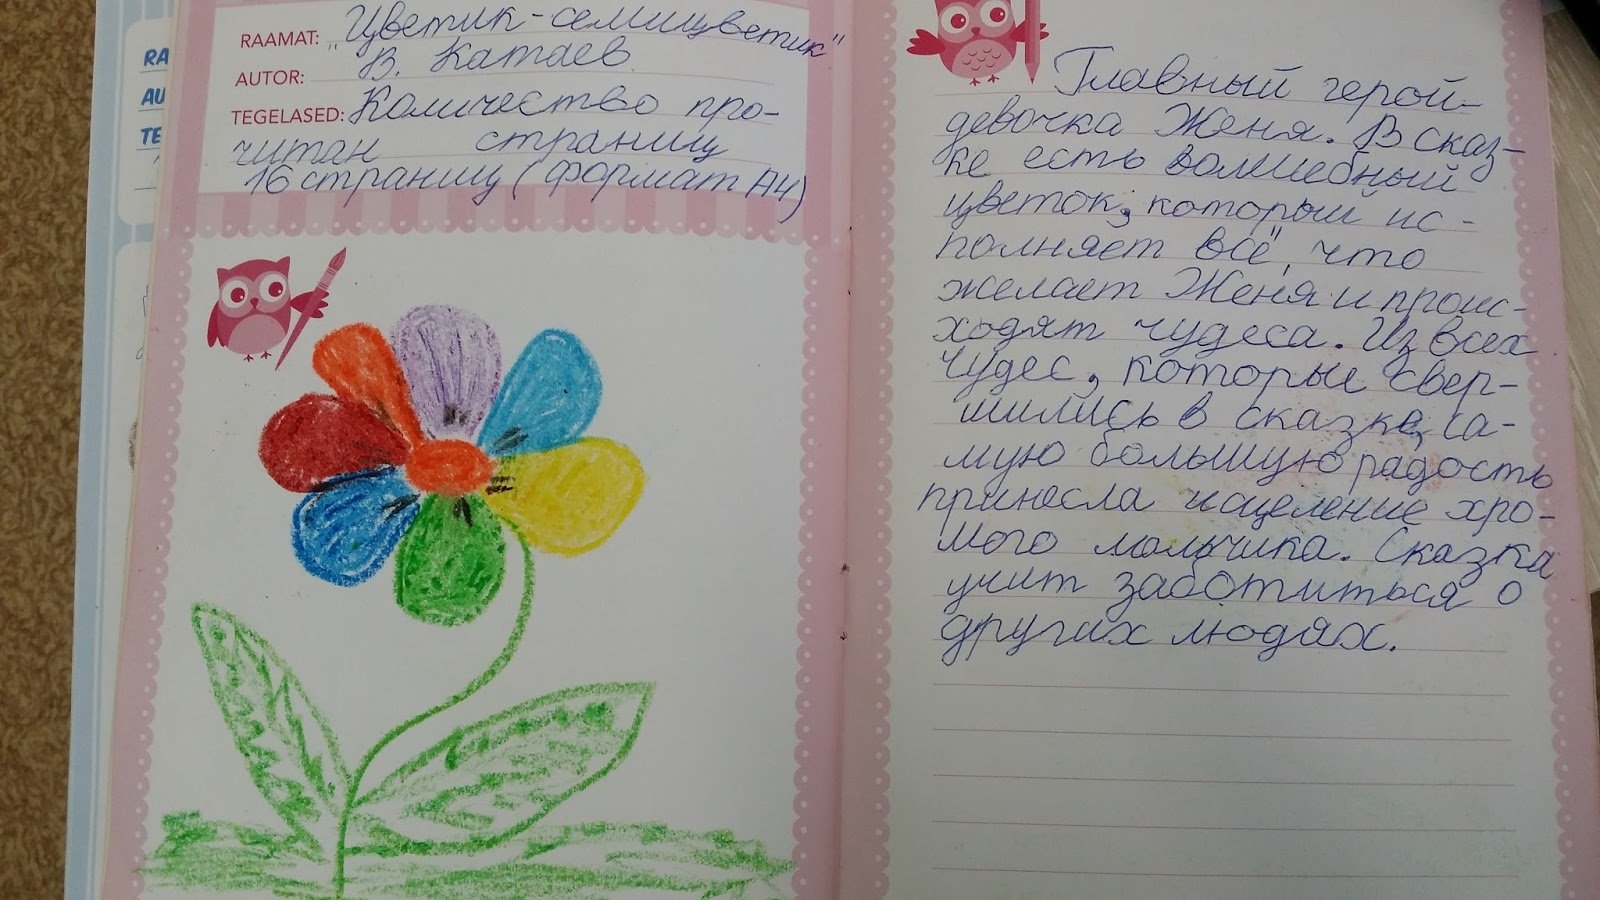 RA
AU
TE
RAAMAT: "Цветик-семицветик"
AUTOR: В. Катаев
TEGELASED: Количество про-
читан страниц
16 страниц (формат А4)
Главный герой-
девочка Женя. В сказ-
ке есть волшебный
цветок, который ис-
полняет всё, что
желает Женя и проис-
ходят чудеса. Из всех
чудес, которые свер-
шились в сказке, са-
мую большую радость
принесла исцеление хро-
мого мальчика. Сказка
учит заботиться о
других людях.